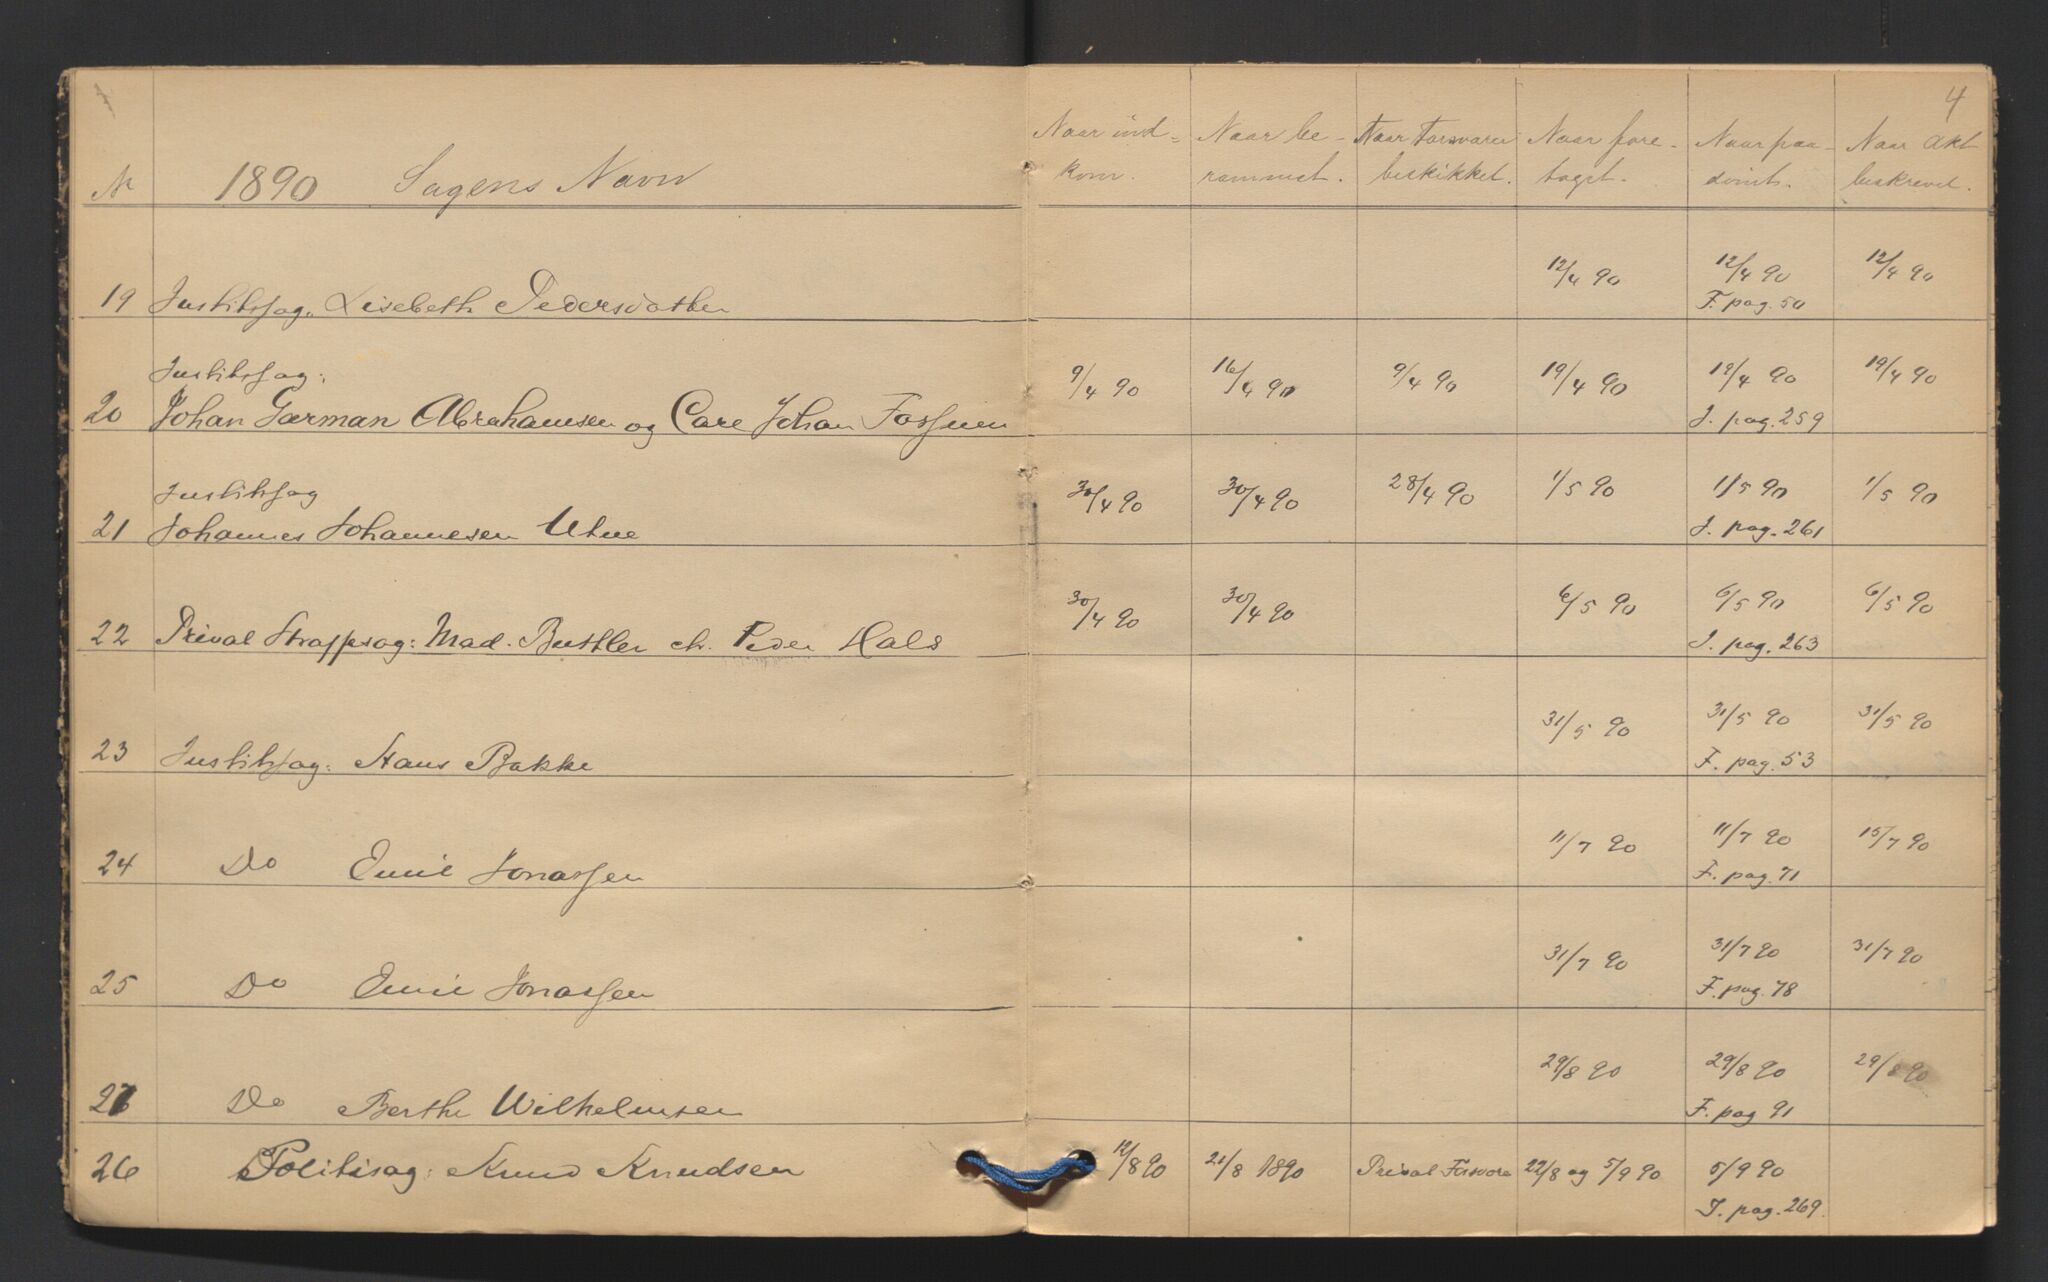 4
No 1890 Sagens Navn Naar ind- Naar be- Naar Forsvarer Naar fore- Naar paa- Naar Akt
kom. rammet. beskikket. taget. dömt. beskrevet.
12/4 90 12/4 90 12/4 90
19 Justitssag. Lisebeth Pedersdatter F. pag. 50
Justitssag:
9/4 90 16/4 90 9/4 90 19/4 90 19/4 90 19/4 90
20 Johan Garman Abrahamsen og Carl Johan J. pag. 259
Justitssag
30/4 90 30/4 90 28/4 90 1/5 90 1/5 90 1/5 90
21 Johannes Johannesen Utne J. pag. 261
30/4 90 30/4 90 6/5 90 6/5 90 6/5 90
22 Privat Straffesag: Mad. Buttler ctr. Peder Hals J. pag. 263
31/5 90 31/5 90 31/5 90
23 Justitssag: Hans Bakke F. pag. 53
11/7 90 11/7 90 15/7 90
24 Do Emil Jonassen F. pag. 71
31/7 90 31/7 90 31/7 90
25 Do Emil Jonassen F. pag. 78
29/8 90 29/8 90 29/8 90
27 Do Berthe Wilhelmsen F. pag 91
26 Politisag: Knud Knudsen 12/8 90 21/8 1890 Privat Forsvarer 22/8 og 5/9 90 5/9 90
J. pag. 269.